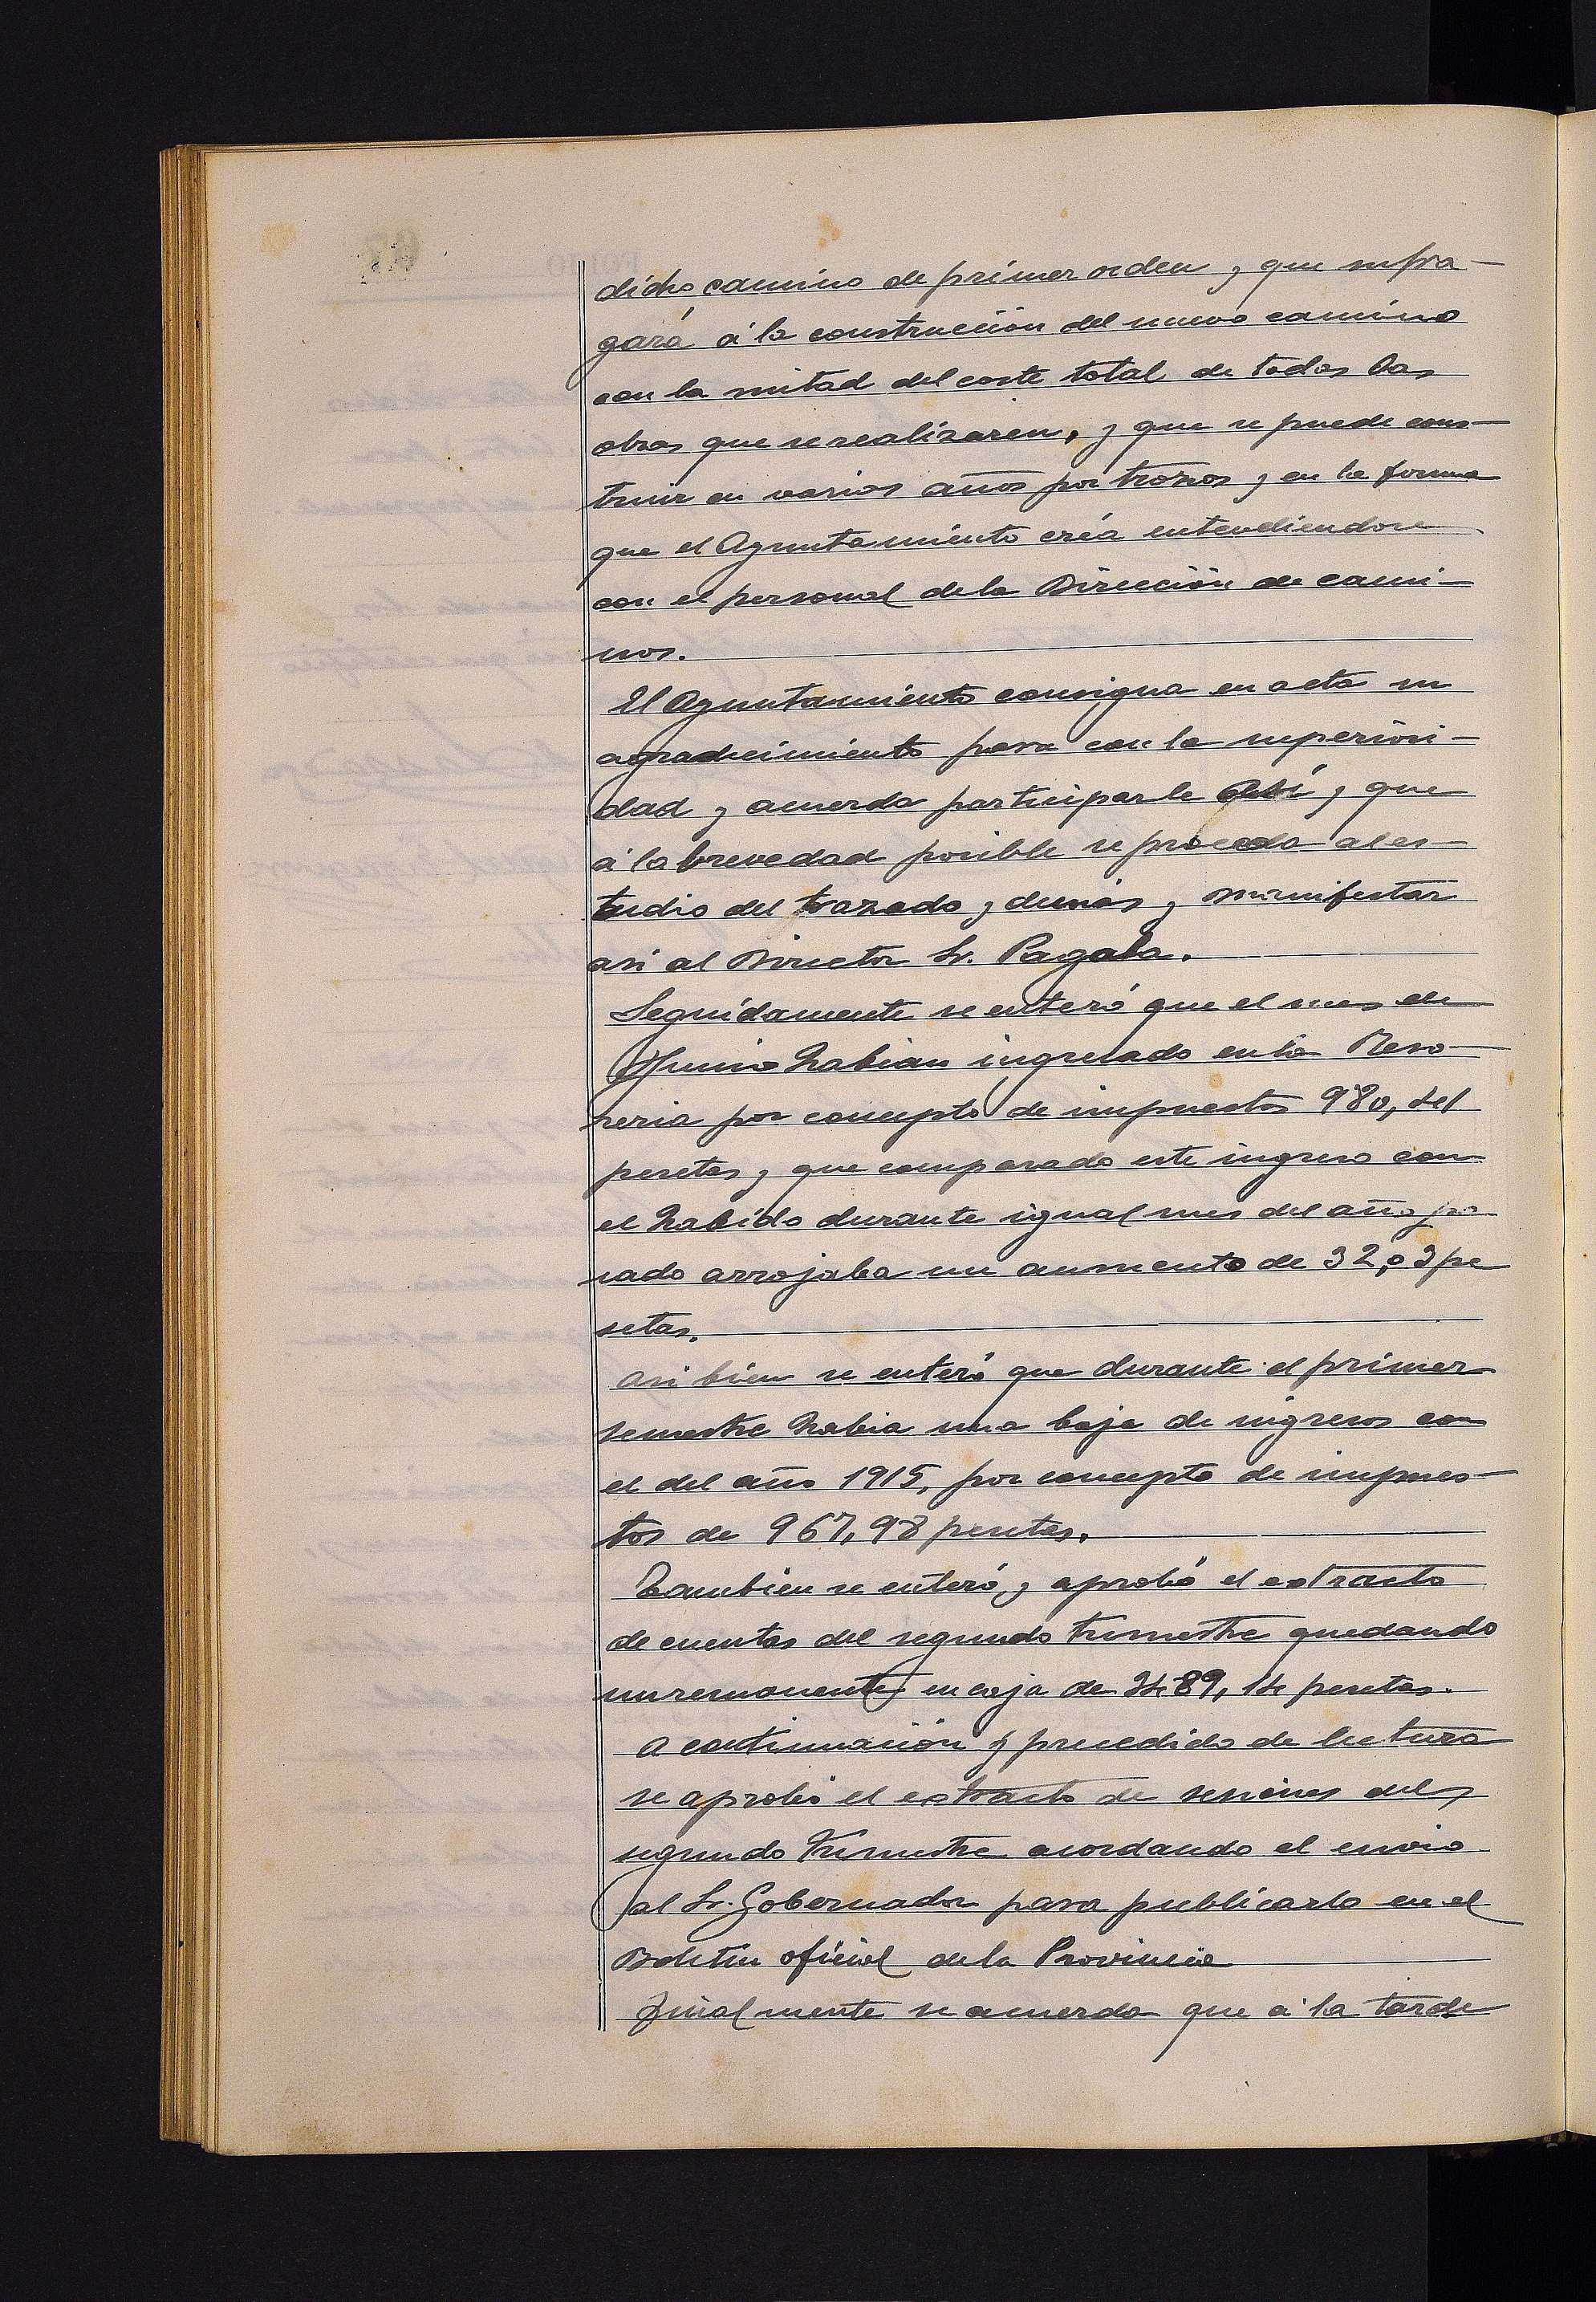 dicho camino de primer orden y que sufra-
gará á la construcción del nuevo camino
con la mitad del coste total de todas las
obras que se realizaren, y que se puede cons-
truir en varios años por trozos y en la forma
que el Ayuntamiento créa entendiendose
con el personal de la Dirección de cami-
nos.
El Ayuntamiento consigna en acta su
agradecimiento para con la superiori-
dad y acuerda participarle así y que
á la brevedad posible se proceda al es-
tudio del trazado y demás y manifestar
asi al Director Sr. Pagala.
Seguídamente se enteró que el mes de
Junio habian ingresado en la Teso-
reria por concepto de impuestos 980,41
pesetas y que comparado este ingreso con
el habido durante igual mes del año pa
sado arrojaba un aumento de 32,03 pe
setas.
Asi bien se enteró que durante el primer
semestre habia una baja de ingresos con
el del año 1915, por concepto de impues-
tos de 967,98 pesetas.
Tambien se enteró y aprobó el extracto
de cuentas del segundo trimestre quedando
un remanente en caja de 3489,14 pesetas.
A continuación y precedido de lectura
se aprobó el extracto de sesiones del
segundo trimestre acordando el envio
al Sr. Gobernador para publicarlo en el
Boletin oficial de la Provincia
Finalmente se acuerda que á la tarde